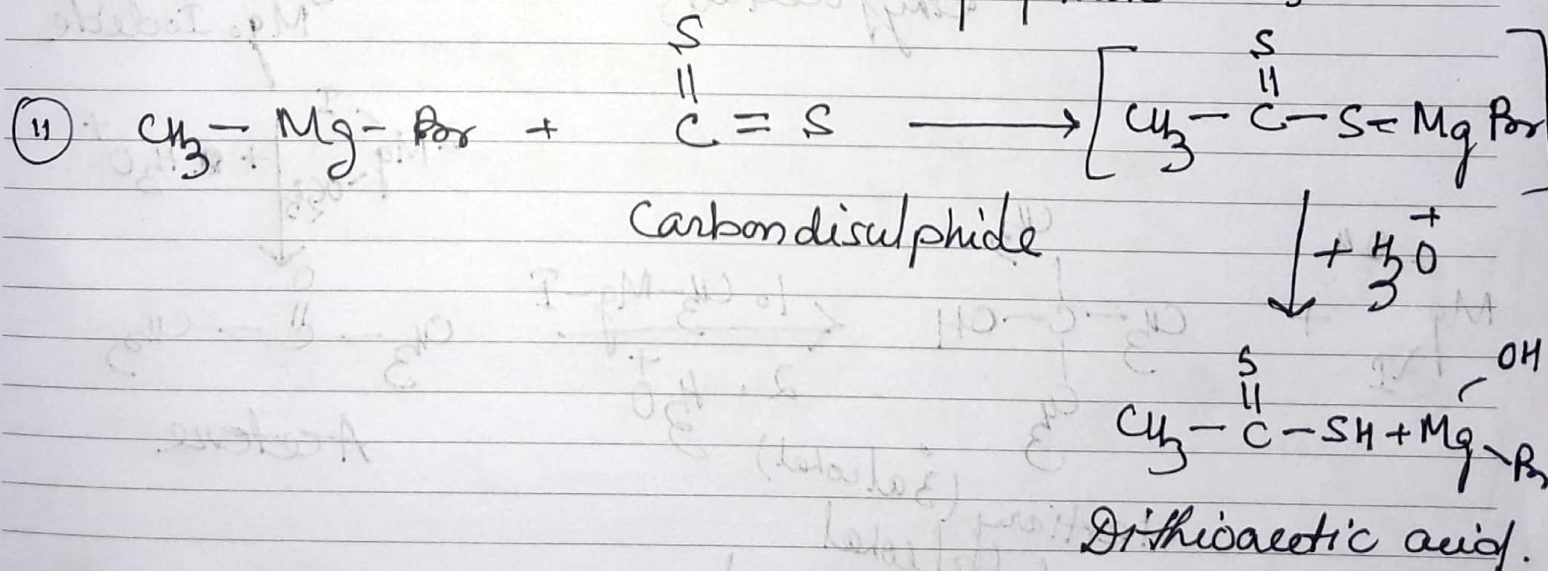 S S
|| ||
(11) CH3 - Mg - Br + C = S ⟶ [CH3 - C - S - Mg Br]
Carbondisulphide ↓ + H3O+
S OH
|| /
CH3 - C - SH + Mg \ Br
Dithioacetic acid.